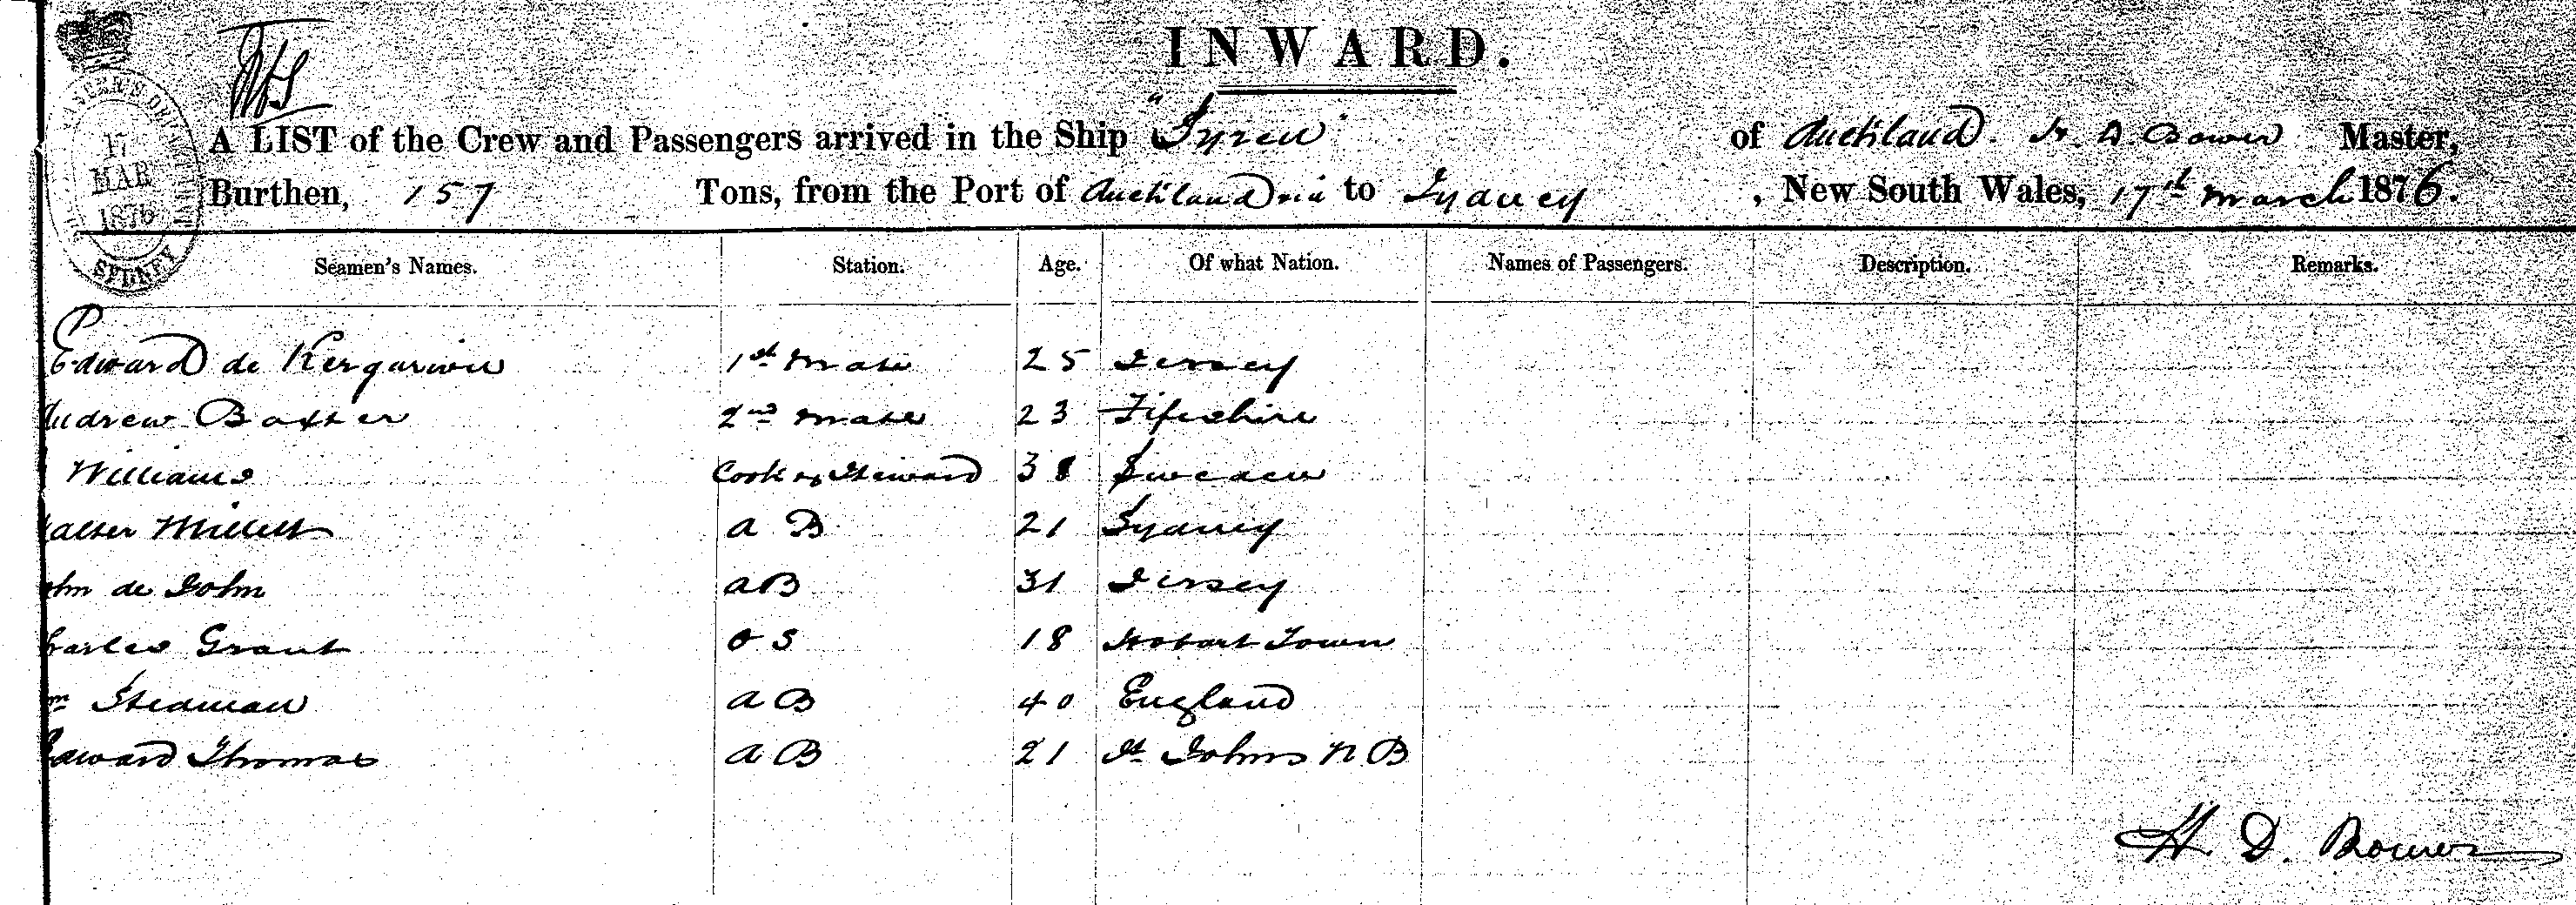 INWARD.
A LIST of the Crew and Passengers arrived in the Ship "Syren" of Auckland. H. D. Bower Master,
Burthen, 157 Tons, from the Port of Auckland via to Sydney, New South Wales, 17th March 1876.
17
MAR
1876
SYDNEY
Seamen's Names. Station. Age. Of what Nation. Names of Passengers. Description. Remarks.
Edward de 1st Mate 25 Jersey
Andrew Baxter 2nd Mate 23 Fifeshire
Williams Cook & Steward 38 Sweden
alter Millett A B 21 Sydney
ohn de John A B 31 Jersey
harles Grant O S 18 Hobart Town
m Stedman A B 40 England
Edward Thomas A B 21 St Johns N B
H D. Bower